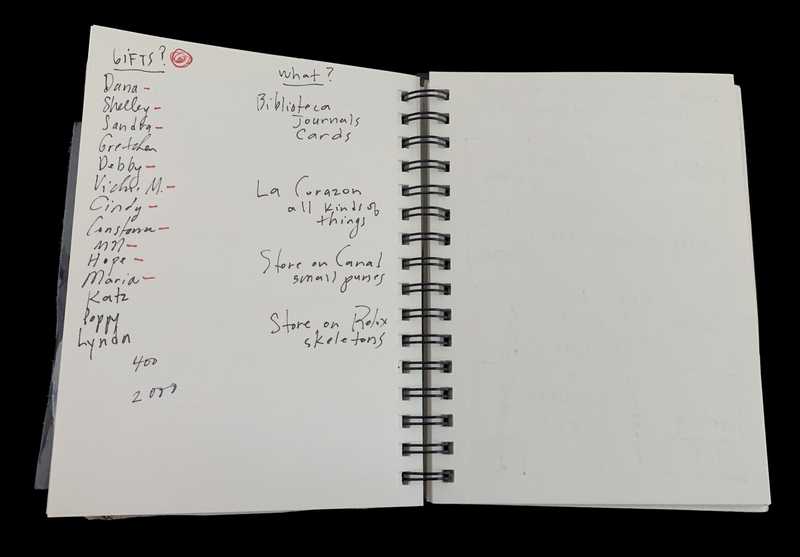 GIFTS?
Dana -
Shelley -
Sandra -
Gretchen
Debby -
Vicki M. -
Cindy -
Constance -
MM -
Hope -
Maria -
Katz
Poppy
Lynda
400
2000
What?
Biblioteca
Journals
Cards
La Corazon
all kinds of
things
Store on Canal
small purses
Store on Relox
skeletons